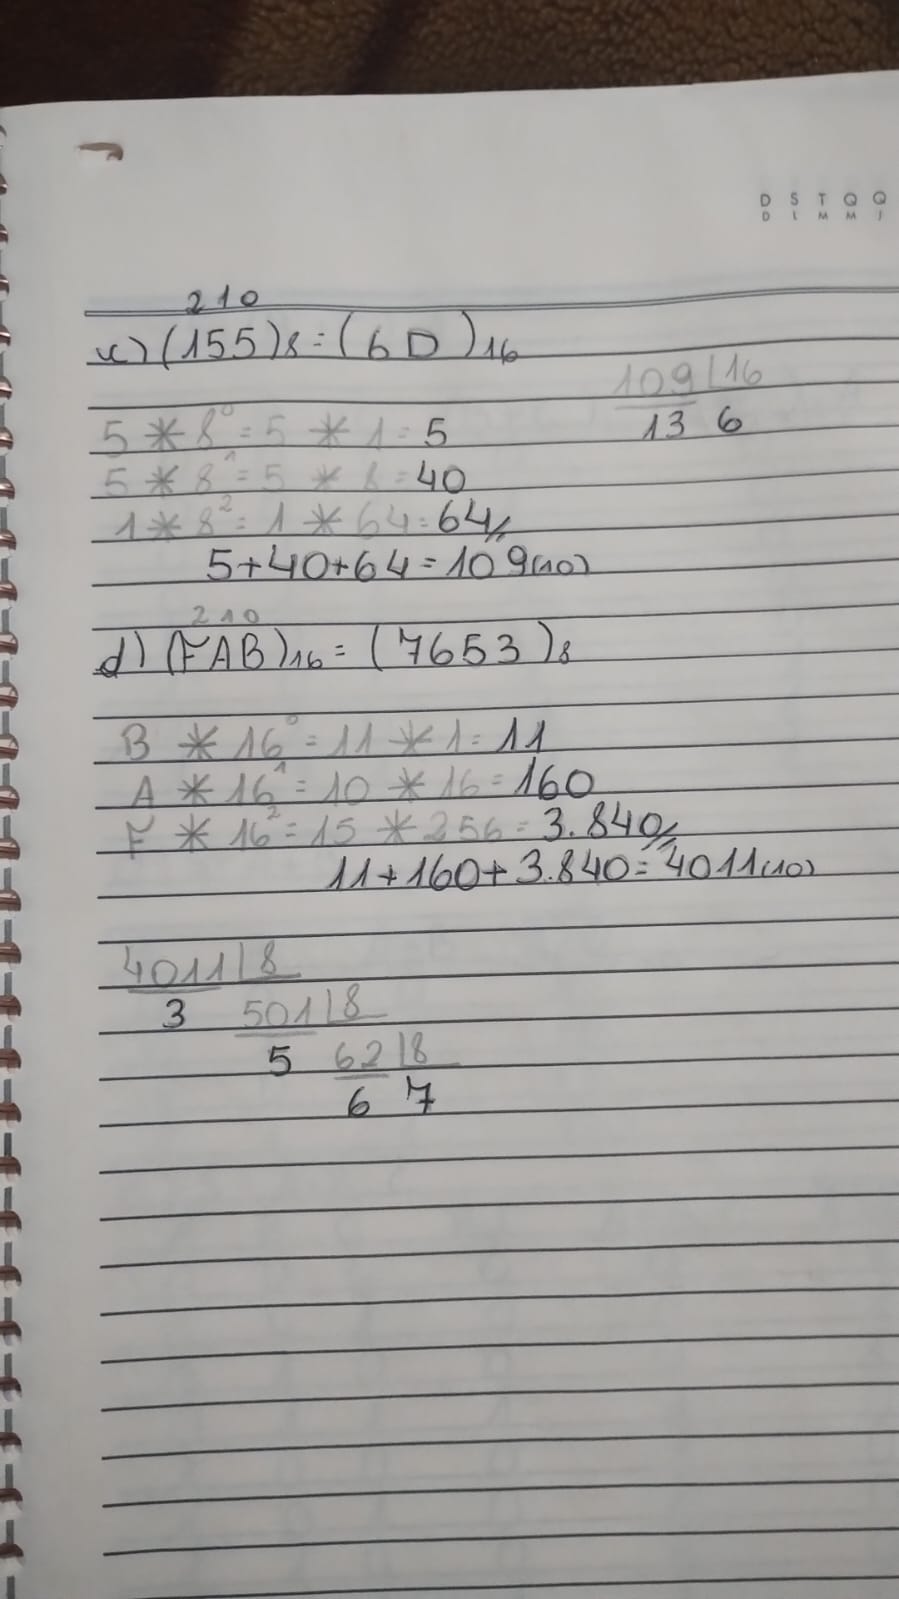 D S T Q Q
D L M M J
2 1 0
c) (155)8 = (6D)16
109 | 16
13 6
5 * 8⁰ = 5 * 1 = 5
5 * 8¹ = 5 * 8 = 40
1 * 8² = 1 * 64 = 64//
5+40+64 = 109(10)
2 1 0
d) (FAB)16 = (7653)8
B * 16⁰ = 11 * 1 = 11
A * 16¹ = 10 * 16 = 160
F * 16² = 15 * 256 = 3.840//
11+160+3.840 = 4011(10)
4011 | 8
3 501 | 8
5 62 | 8
6 7